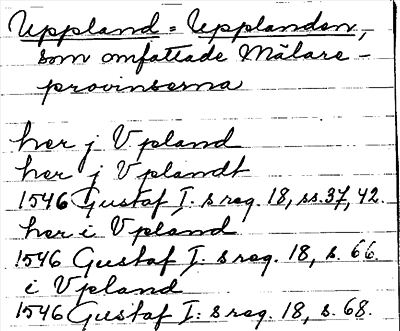 Uppland = Upplanden,
som omfattade Mälare-
provinserna
her j Vpland
her j Vplandt
1546 Gustaf I: s reg. 18, ss. 37, 42.
her i Vpland
1546 Gustaf I: s reg. 18, s. 66.
i Vpland
1546 Gustaf I: s reg. 18, s. 68.